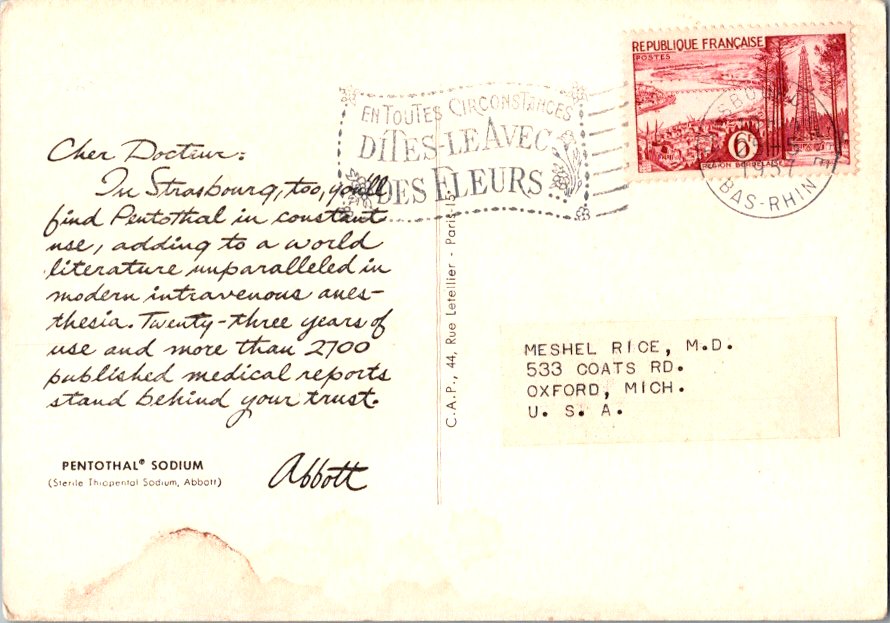 REPUBLIQUE FRANÇAISE
POSTES
6F
REGION BORDELAISE
1957
BAS-RHIN
EN TOUTES CIRCONSTANCES
DITES-LE AVEC
DES FLEURS
Cher Docteur:
In Strasbourg, too, you'll
find Pentothal in constant
use, adding to a world
literature unparalleled in
modern intravenous anes-
thesia. Twenty-three years of
use and more than 2700
published medical reports
stand behind your trust.
Abbott
PENTOTHAL® SODIUM
(Sterile Thiopental Sodium, Abbott)
C.A.P., 44, Rue Letellier - Paris-15
MESHEL RICE, M.D.
533 COATS RD.
OXFORD, MICH.
U. S. A.